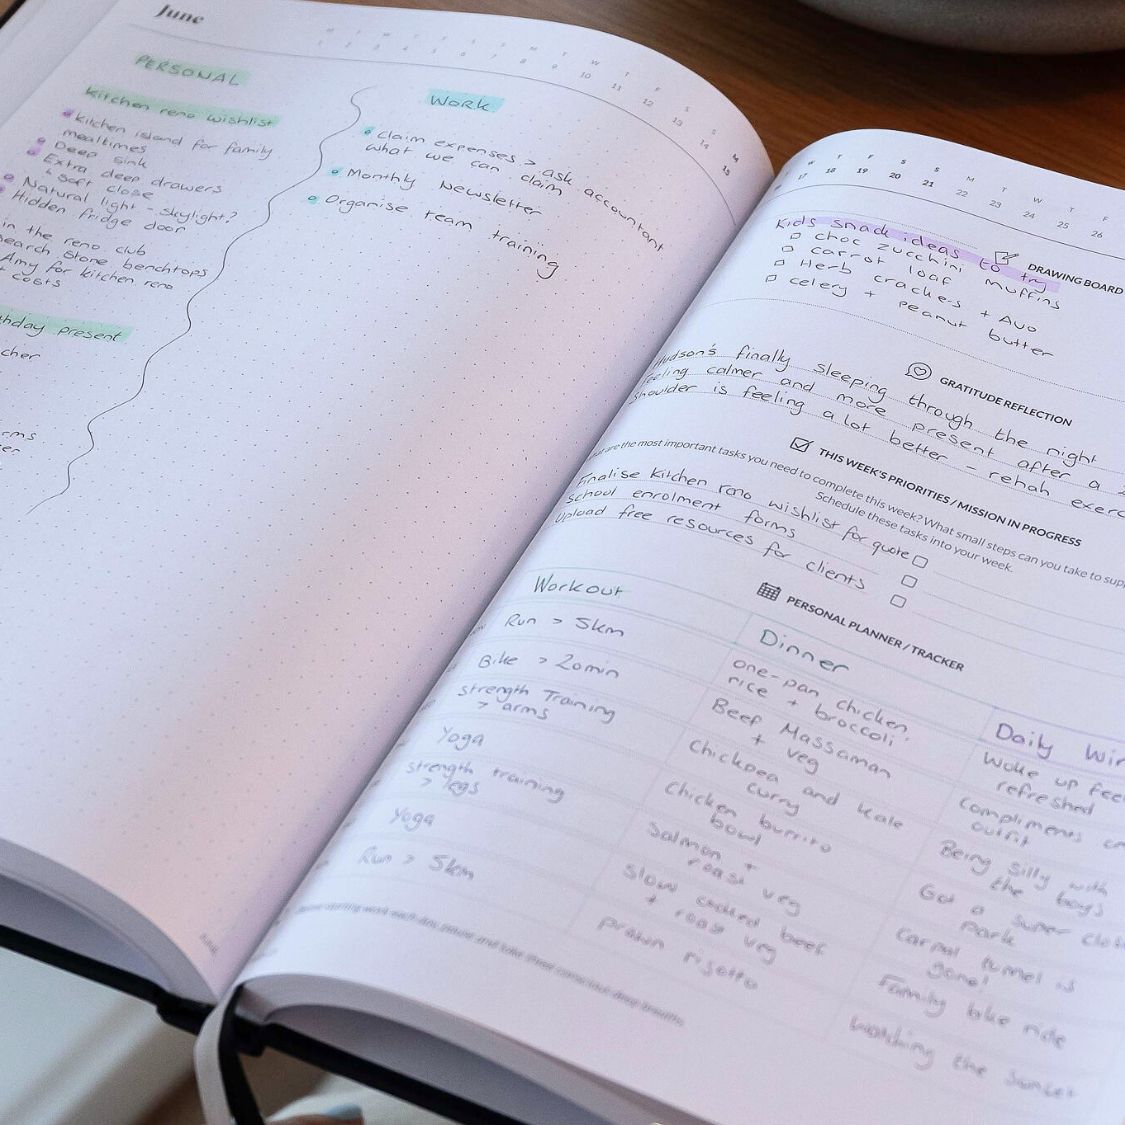 June
M T W T F S S M T W T F S S M
1 2 3 4 5 6 7 8 9 10 11 12 13 14 15
PERSONAL
kitchen reno wishlist
kitchen island for family
mealtimes
Deep sink
Extra deep drawers
↳ soft close
Natural light - skylight?
Hidden fridge door
in the reno club
search stone benchtops
Amy for kitchen reno
costs
present
WORK
claim expenses > ask accountant
what we can claim
Monthly Newsletter
Organise team training
W T F S S M T W T F
17 18 19 20 21 22 23 24 25 26
DRAWING BOARD
Kids snack ideas to try
choc zucchini muffins
carrot loaf
Herb crackers + Avo
celery + peanut butter
GRATITUDE REFLECTION
Hudson's finally sleeping through the night
Feeling calmer and more present after a
Shoulder is feeling a lot better - rehab
THIS WEEK'S PRIORITIES / MISSION IN PROGRESS
are the most important tasks you need to complete this week? What small steps can you take to
Schedule these tasks into your week.
Finalise kitchen reno wishlist for quote
School enrolment forms
Upload free resources for clients
PERSONAL PLANNER / TRACKER
Workout
Run > 5km
Bike > 20min
strength Training
> arms
Yoga
strength training
> legs
Yoga
Run > 5km
Dinner
one-pan chicken
rice + broccoli
Beef Massaman
+ veg
Chickpea and kale
curry
chicken burrito
bowl
Salmon +
roast veg
Slow cooked beef
+ roast veg
prawn risotto
Daily
Woke up
refreshed
compliments
outfit
Being silly with
the boys
Got a super
park
Carpal tunnel is
gone!
Family bike ride
Watching the sunset